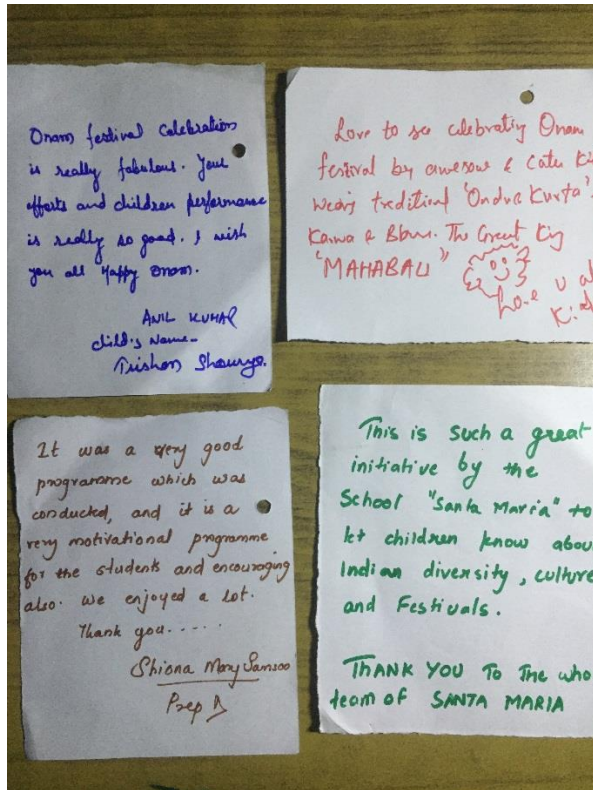 Onam festival Celebration
is really fabulous. Your
efforts and children performance
is really so good. I wish
you all Happy Onam.
ANIL KUMAR
child's Name-
Trishan Shourya.
Love to see celebrating Onam
festival by awesome & Cute
wearing traditional
The Great King
"MAHABALI"
Love u
It was a very good
programme which was
conducted, and it is a
very motivational programme
for the students and encouraging
also. We enjoyed a lot.
Thank you.....
Shiona Mary
Prep
This is such a great
initiative by the
School "Santa Maria" to
let children know
Indian diversity, culture
and Festivals.
THANK YOU TO THE
team of SANTA MARIA